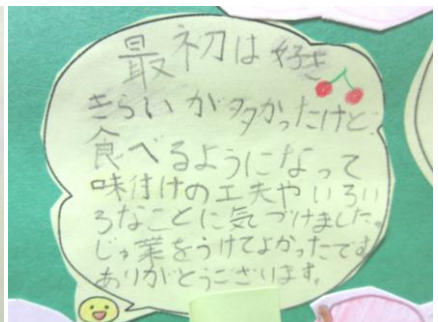 最初は好き
きらいが多かったけど、
食べるようになって
味付けの工夫やいろい
ろなことに気づけました。
じゅ業をうけてよかったです
ありがとうございます。